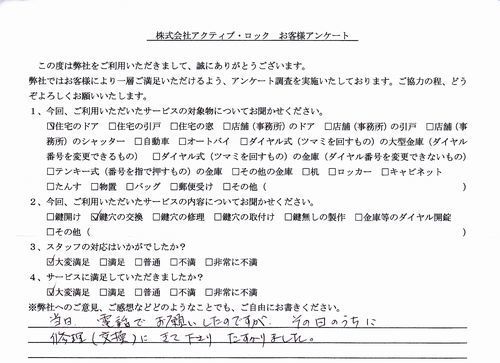 株式会社アクティブ・ロック　お客様アンケート
この度は弊社をご利用いただきまして、誠にありがとうございます。
弊社ではお客様により一層ご満足いただけるよう、アンケート調査を実施いたしております。ご協力の程、どうぞよろしくお願いいたします。
1、今回、ご利用いただいたサービスの対象物についてお聞かせください。
☑住宅のドア　□住宅の引戸　□住宅の窓　□店舗（事務所）のドア　□店舗（事務所）の引戸　□店舗（事
務所）のシャッター　□自動車　□オートバイ　□ダイヤル式（ツマミを回すもの）の大型金庫（ダイヤル
番号を変更できるもの）　□ダイヤル式（ツマミを回すもの）の金庫（ダイヤル番号を変更できないもの）
□テンキー式（番号を指で押すもの）の金庫　□その他の金庫　□机　□ロッカー　□キャビネット
□たんす　□物置　□バッグ　□郵便受け　□その他（　　　　）
2、今回、ご利用いただいたサービスの内容についてお聞かせください。
□鍵開け　☑鍵穴の交換　□鍵穴の修理　□鍵穴の取付け　□鍵無しの製作　□金庫等のダイヤル開錠
□その他（　　　　）
3、スタッフの対応はいかがでしたか？
☑大変満足　□満足　□普通　□不満　□非常に不満
4、サービスに満足していただきましたか？
☑大変満足　□満足　□普通　□不満　□非常に不満
※弊社へのご意見、ご感想などどのようなことでも、ご自由にお書きください。
当日、電話でお願いしたのですが、その日のうちに
修理（交換）にきて下さり　たすかりました。